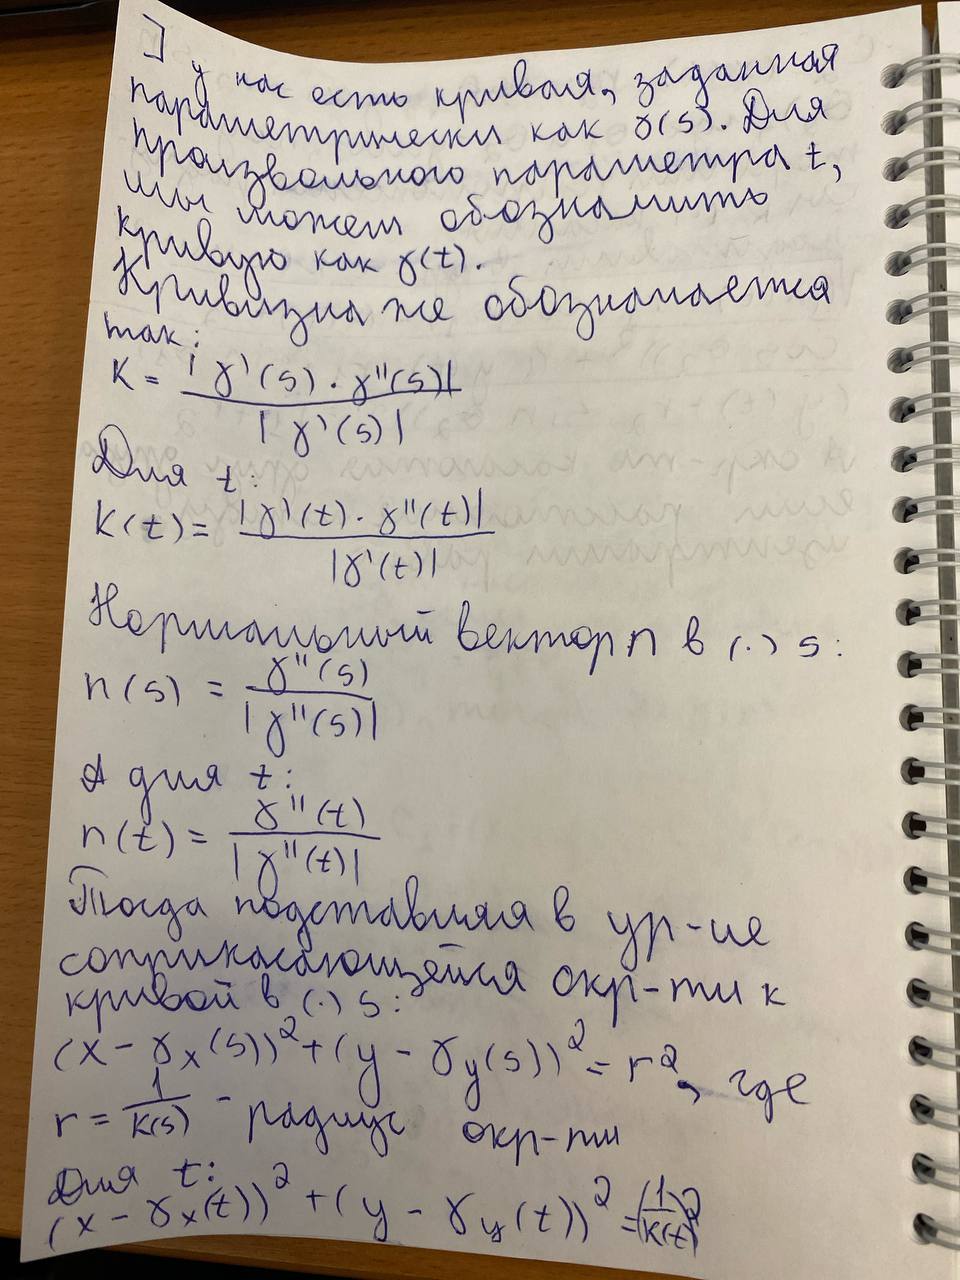 ] у нас есть кривая, заданная
параметрически как γ(s). Для
произвольного параметра t,
мы можем обозначить
кривую как γ(t).
Кривизна же обозначается
так:
K = |γ'(s) · γ''(s)| / |γ'(s)|
Для t:
K(t) = |γ'(t) · γ''(t)| / |γ'(t)|
Нормальный вектор n в (·) s:
n(s) = γ''(s) / |γ''(s)|
А для t:
n(t) = γ''(t) / |γ''(t)|
Тогда подставляя в ур-ие
соприкасающейся окр-ти к
кривой в (·) s:
(x - γx(s))² + (y - γy(s))² = r², где
r = 1/K(s) - радиус окр-ти
Для t:
(x - γx(t))² + (y - γy(t))² = (1/K(t))²